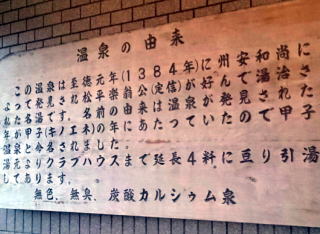 温泉の由来
この温泉は至徳元年(1384年)に州安和尚に
よって発見され松平楽翁公(定信)が好んで湯治さ
れた名湯です。名前の由来は温泉が発見された
年が甲子(キノエネ)の年にあたっていたので甲子
温泉と命名されました
湯元よりクラブハウスまで延長4粁に亘り引湯
してあります。
無色、無臭、炭酸カルシゥム泉